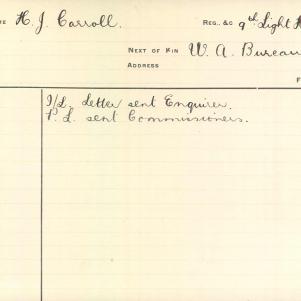 H. J. Carroll. Reg., &c 9th Light H
Next of Kin W. A. Bureau
Address
I/L. Letter sent Enquirer.
P. L. sent Commissioners.